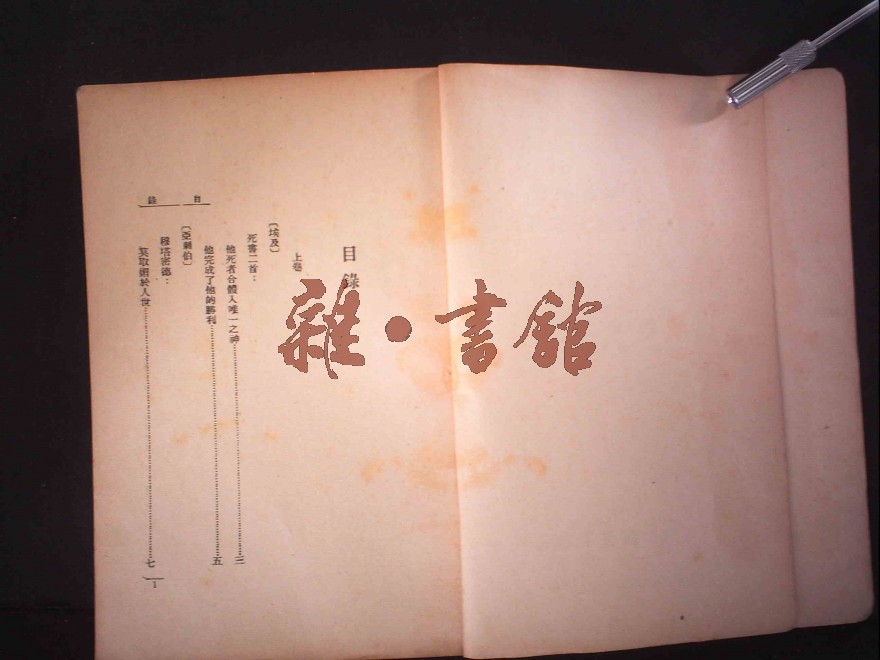 目錄
上卷
〔埃及〕
死書二首：
他死者合體入唯一之神……三
他完成了他的勝利……五
〔亞剌伯〕
穆塔密德：
莫取締於人世……七
目錄
1
雜·書館